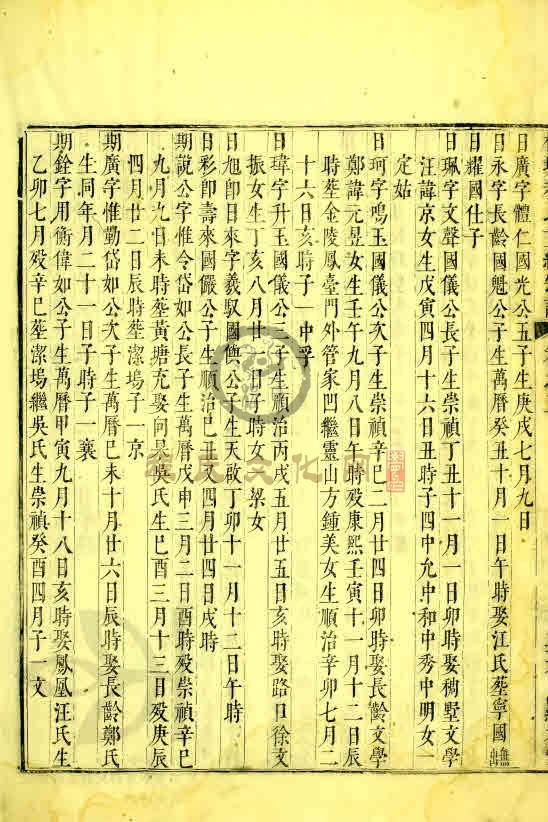 日廣字體仁國光公五子生庚戌七月九日
日永字長齡國魁公子生萬曆癸丑十月一日午時娶江氏塟寧國無出
日耀國仕子
日珮字文聲國儀公長子生崇禎丁丑十一月一日卯時娶稠墅文學
汪諱京女生戊寅四月十六日丑時子四中允中和中秀中明女一
定姑
日珂字鳴玉國儀公次子生崇禎辛巳二月廿四日卯時娶長齡文學
鄭諱元昱女生壬午九月八日午時歿康熙壬寅十一月十二日辰
時塟金陵鳳臺門外管家凹繼靈山方鍾美女生順治辛卯七月二
十六日亥時子一中孚
日瑋字升玉國儀公三子生順治丙戌五月廿五日亥時娶路口徐文
振女生丁亥八月廿一日子時女一梁女
日旭卽日來字義馭國儛公子生天啟丁卯十一月十二日午時
日彩卽壽來國儼公子生順治己丑四月廿四日戌時
期說公字惟令岱如公長子生萬曆戊申三月二日酉時歿崇禎辛巳
九月九日未時塟黃塘充娶向杲吳氏生己酉三月十三日歿庚辰
四月廿二日辰時塟潔塢子一京
期廣字惟勤岱如公次子生萬曆己未十月廿六日辰時娶長齡鄭氏
生同年月二十一日子時子一襄
期銓字用衡偉如公子生萬曆甲寅九月十八日亥時娶鳳凰汪氏生
乙卯七月歿辛巳塟潔塢繼吳氏生崇禎癸酉四月子一文